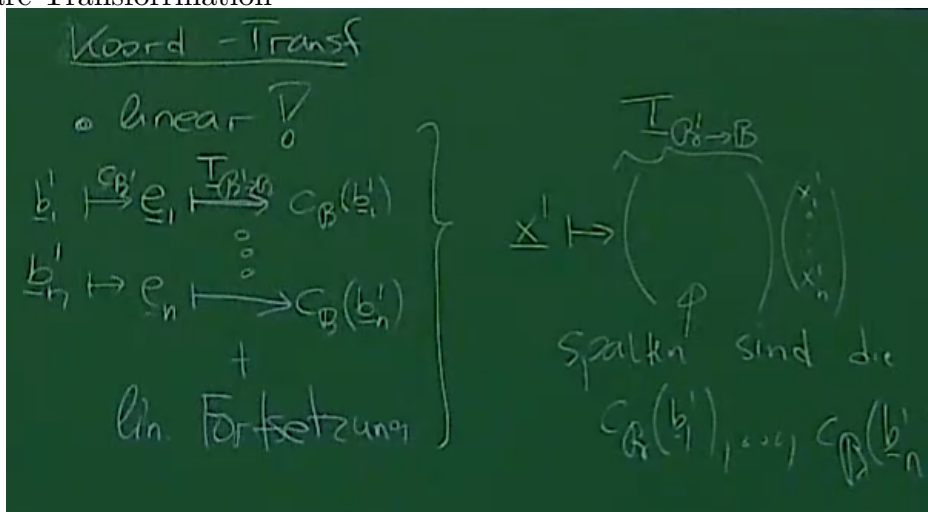 Koord - Transf
• linear !
b'_1 ↦^{c_{B'}} e_1 ↦^{T_{B'→B}} c_B(b'_1)
⋮
b'_n ↦ e_n ↦ c_B(b'_n)
+
lin. Fortsetzung
T_{B'→B}
x' ↦ ( ) (x'_1 ⋮ x'_n)
Spalten sind die
c_B(b'_1), ..., c_B(b'_n